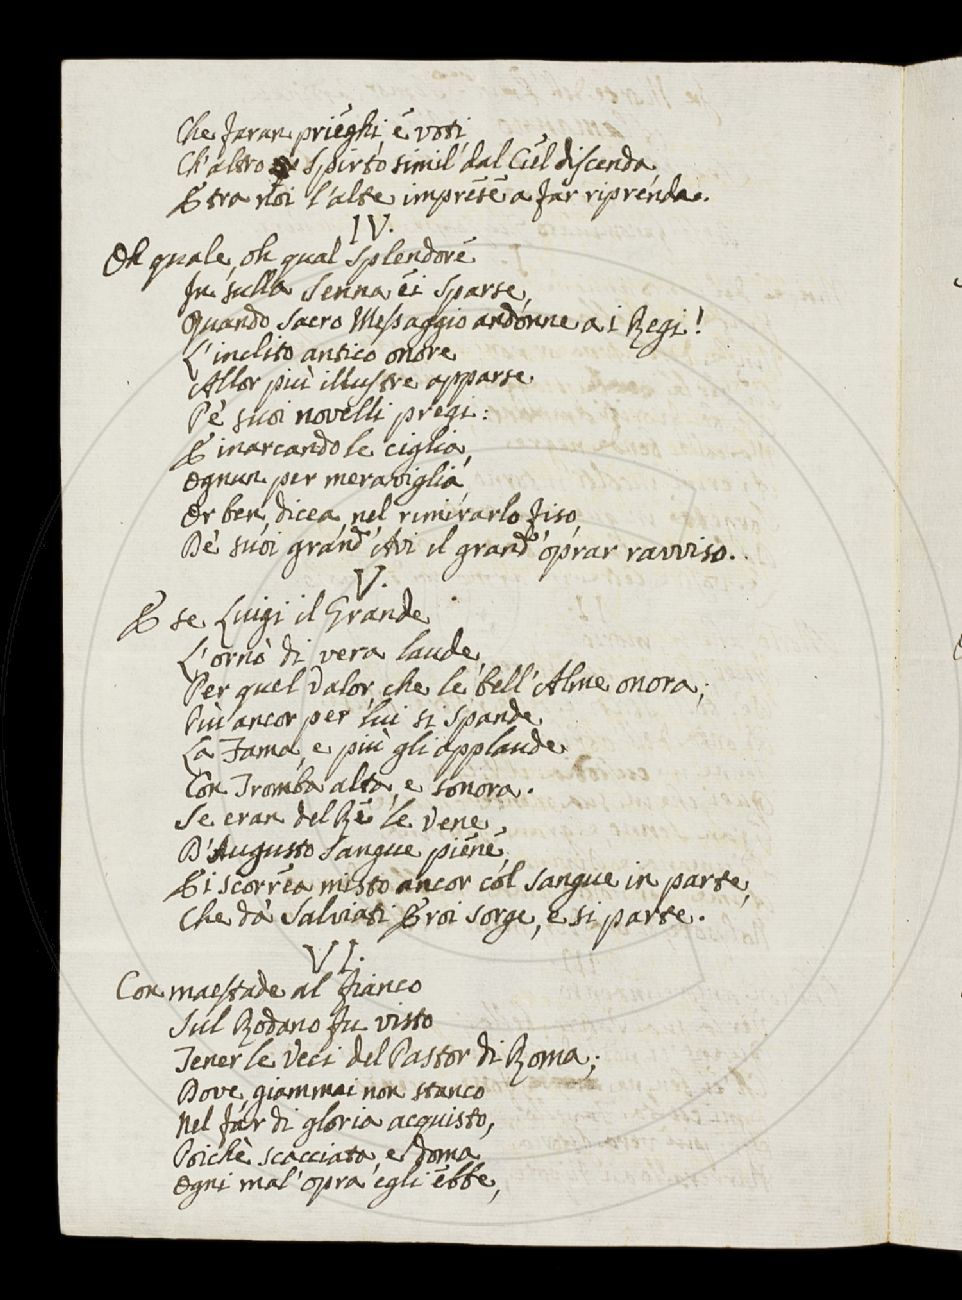 Che faran prieghi e voti,
Ch'altro spirto simil dal Ciel discenda,
E tra noi l'alte imprese a far riprenda.
IV.
Oh quale, oh qual splendore
In sulla Senna ei sparse,
Quando Sacro Messaggio andonne a i Regi!
L'inclito antico onore
Allor più illustre apparse
Pe' suoi novelli pregi:
E inarcando le ciglia,
Ognun per meraviglia,
Or ben, dicea, nel rimirarlo fiso,
De' suoi grand'Avi il grand'oprar ravviso.
V.
E se Luigi il Grande
L'ornò di vera laude,
Per quel valor, che le bell'Alme onora;
Più ancor per lui si spande
La Fama, e più gli applaude
Con Tromba alta, e sonora.
Se eran del Re le vene
D'Augusto Sangue piene,
Ei scorrea misto ancor col sangue in parte,
Che da' Salviati Eroi sorge, e si parte.
VI.
Con maestade al fianco
Sul Rodano fu visto
Tener le veci del Pastor di Roma;
Dove giammai non stanco
Nel far di gloria acquisto,
Poichè scacciata, e doma
Ogni mal'opra egli ebbe,